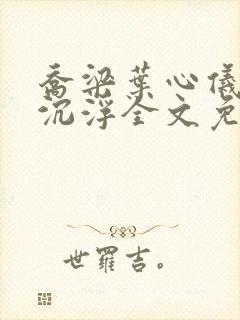 乔梁葉心儀
沉浮全文免
世羅吉。